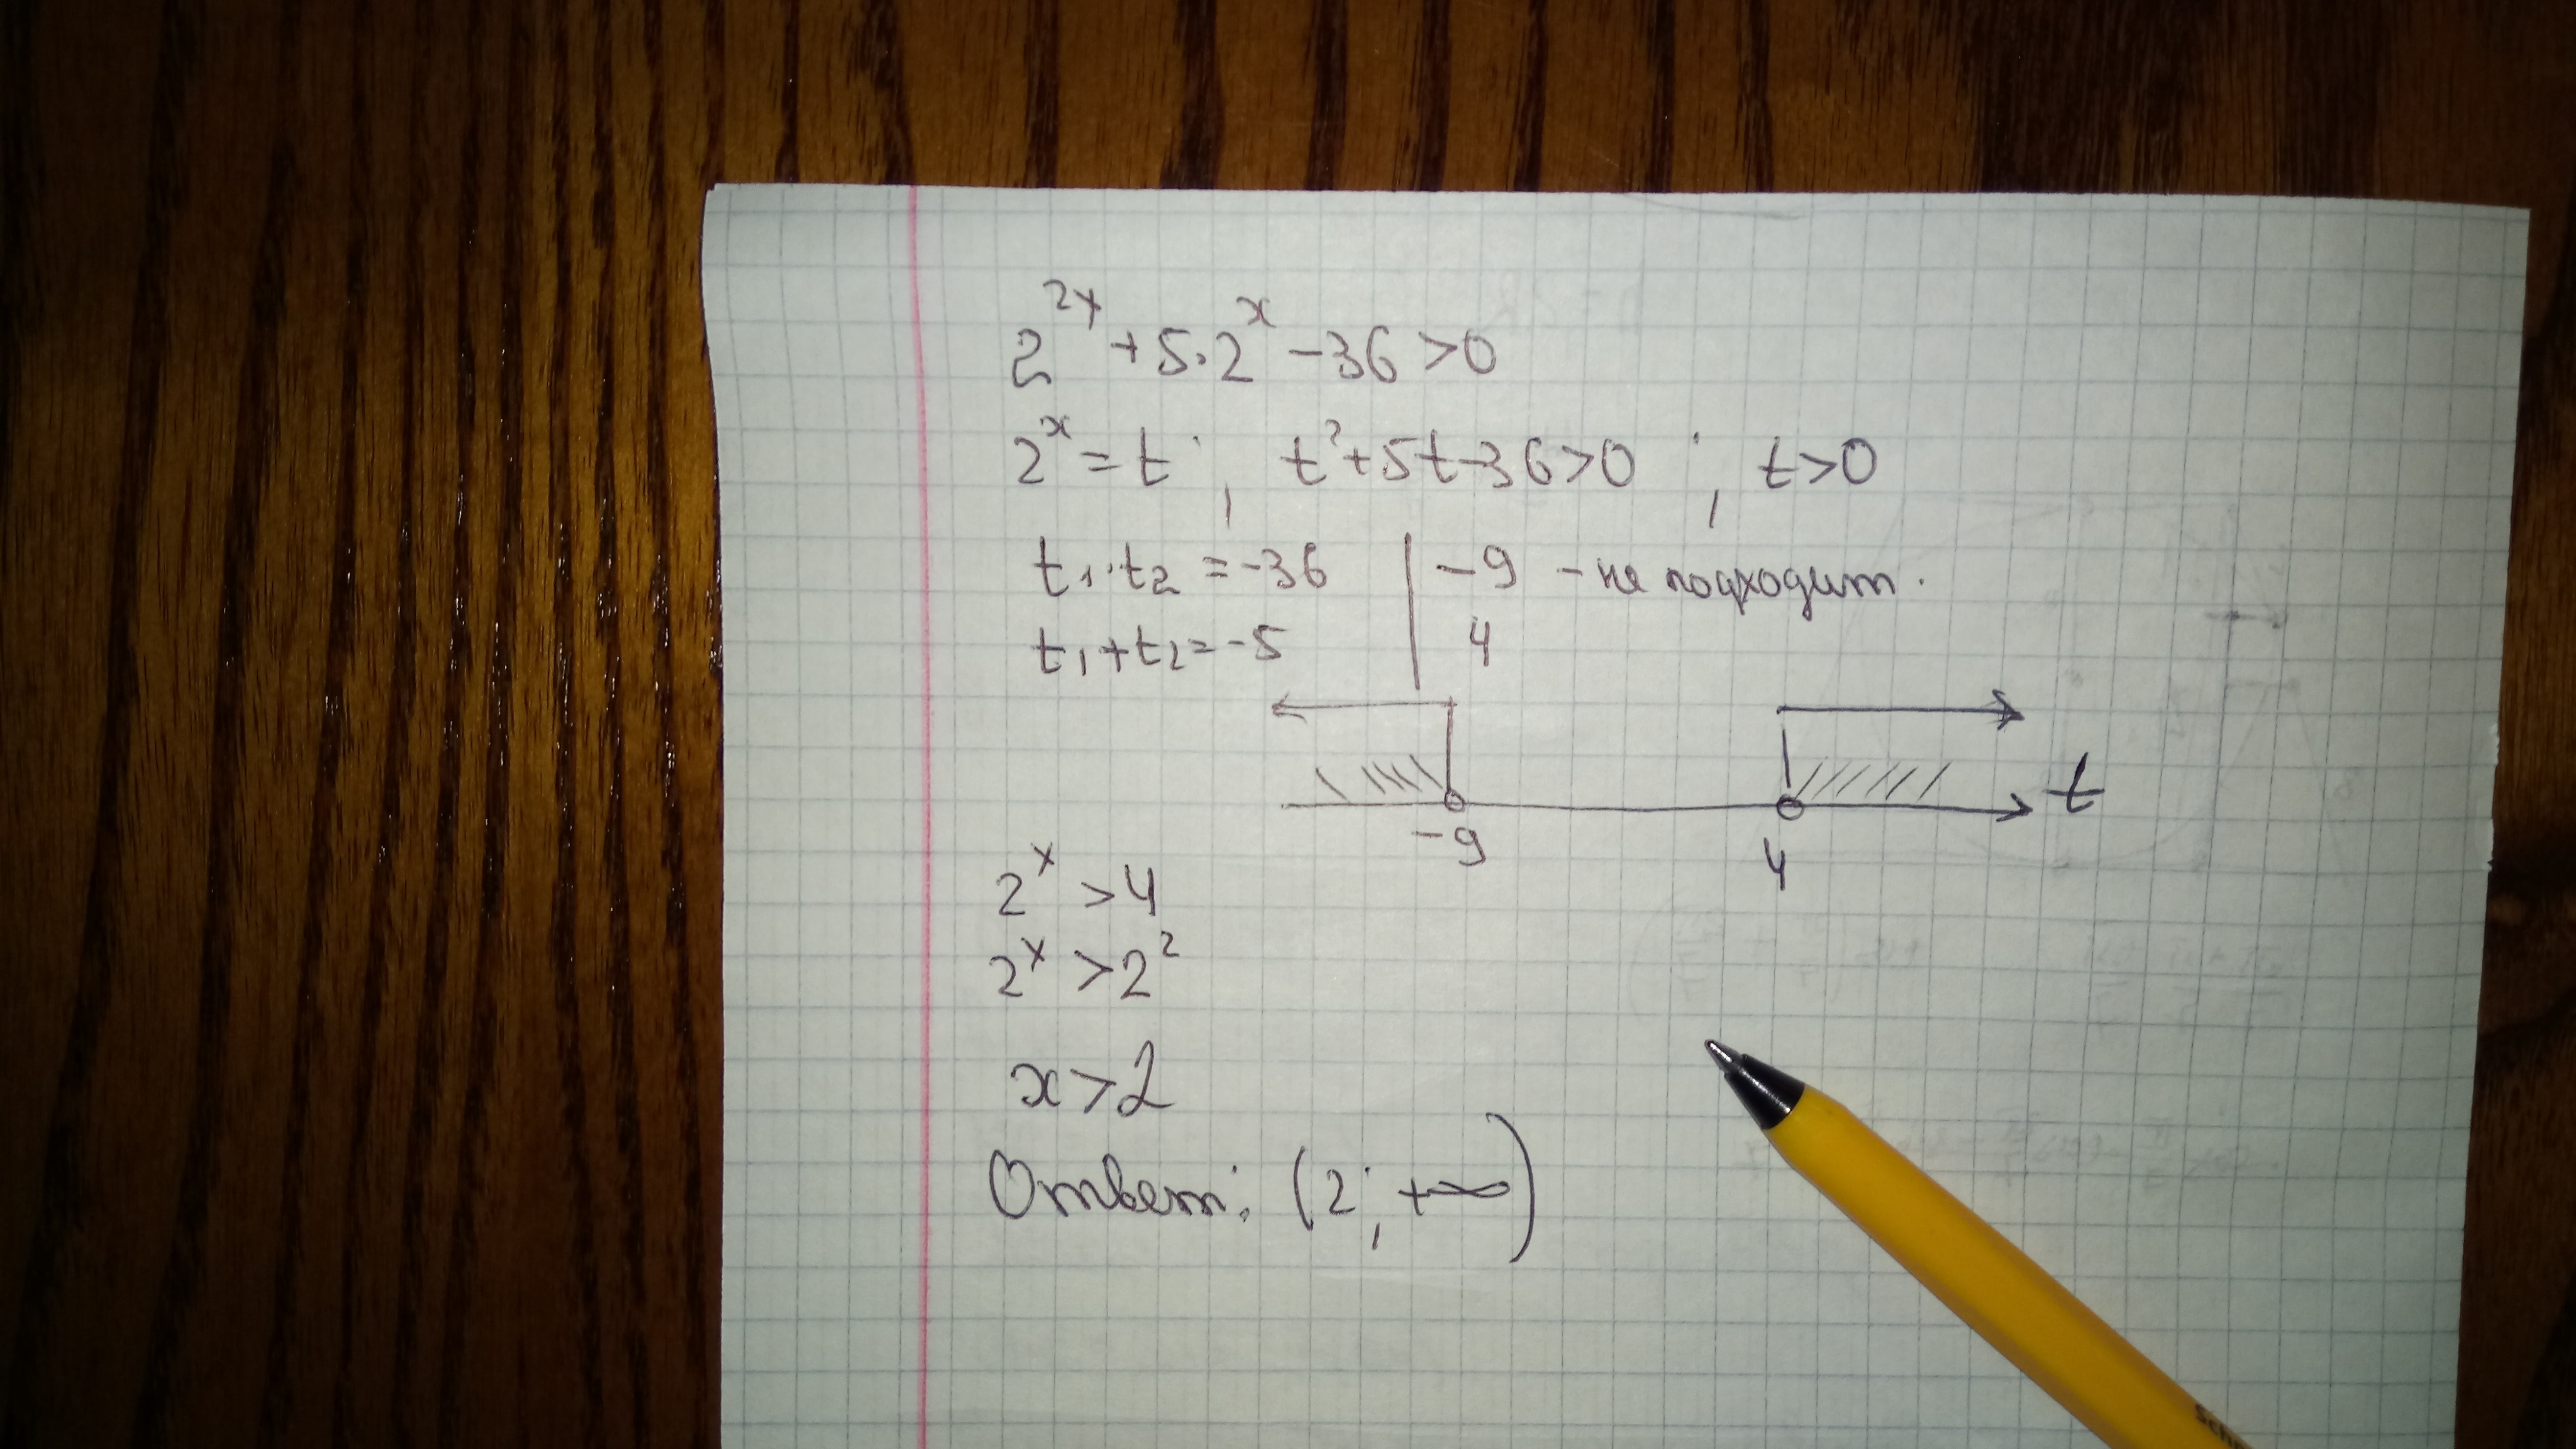 2^{2x} + 5·2^x − 36 > 0
2^x = t ; t² + 5t − 36 > 0 ; t > 0
t₁·t₂ = −36 | −9 − не подходит.
t₁ + t₂ = −5 | 4
t
−9 4
2^x > 4
2^x > 2²
x > 2
Ответ: (2; +∞)